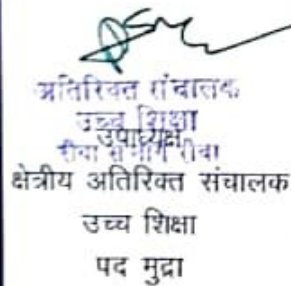 अतिरिक्त संचालक
उच्च शिक्षा
उपाध्यक्ष
रीवा संभाग रीवा
क्षेत्रीय अतिरिक्त संचालक
उच्च शिक्षा
पद मुद्रा